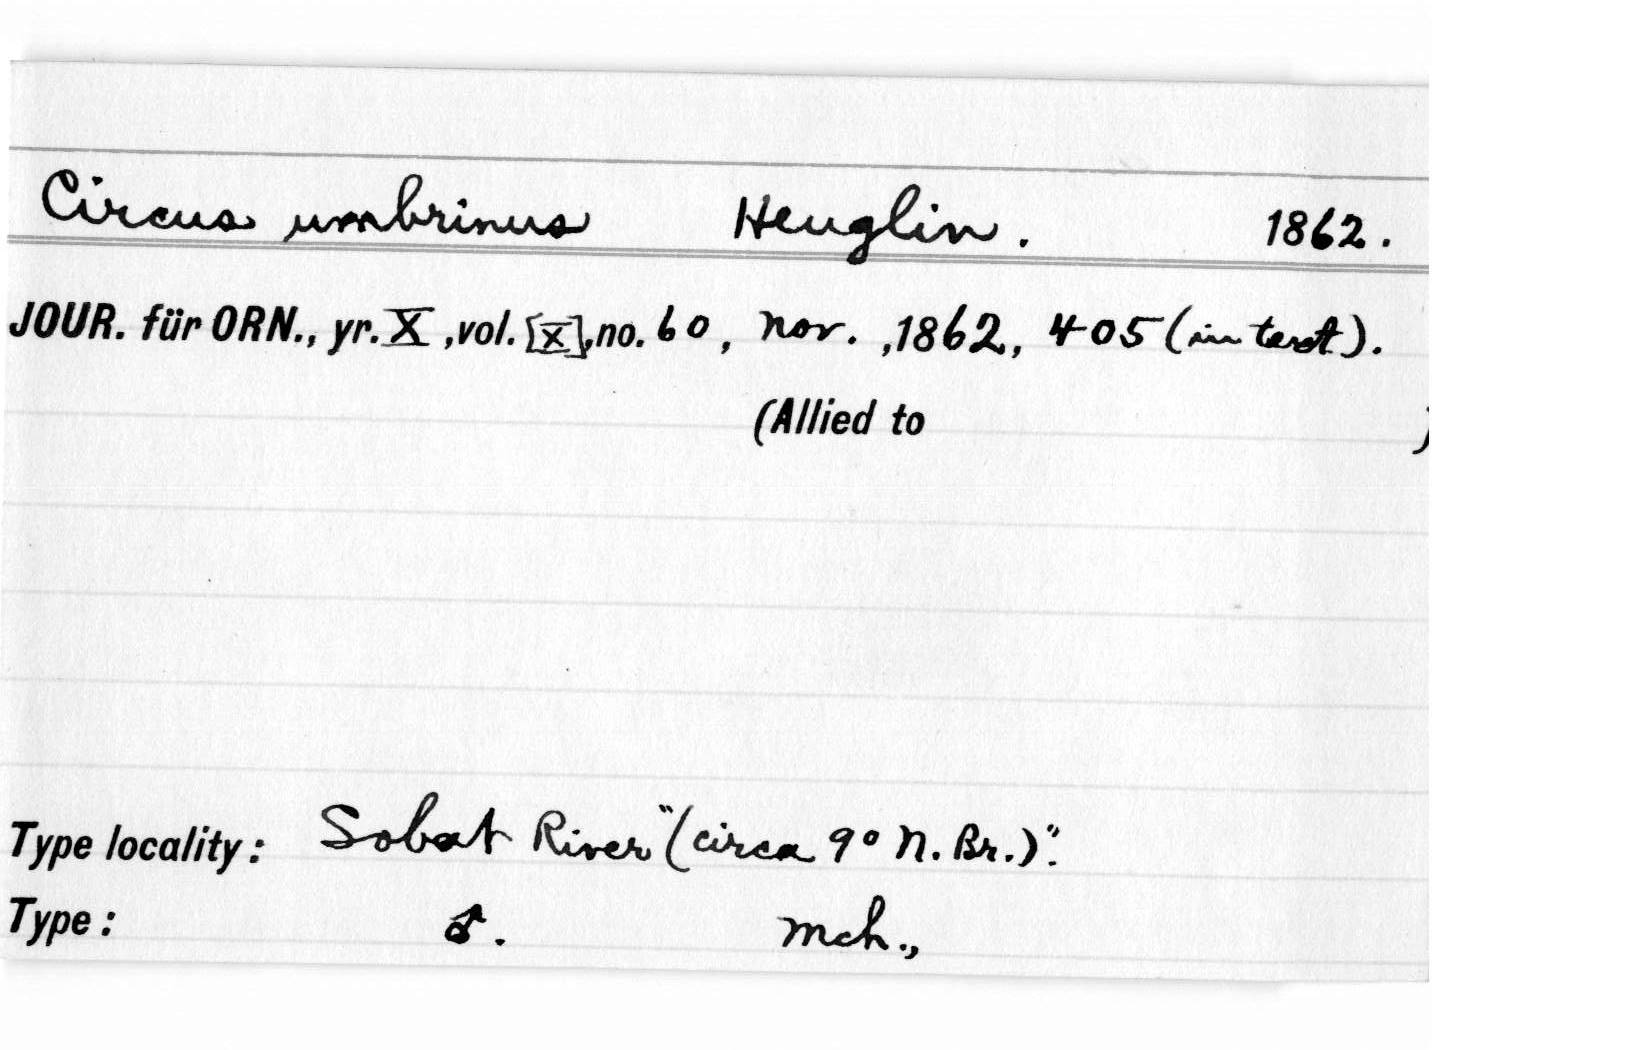 Circus umbrinus Heuglin. 1862.
JOUR. für ORN., yr. X, vol. [X], no. 60, Nov., 1862, 405 (in text).
(Allied to )
Type locality: Sobat River "(circa 9° N. Br.)".
Type: ♂. Mch.,